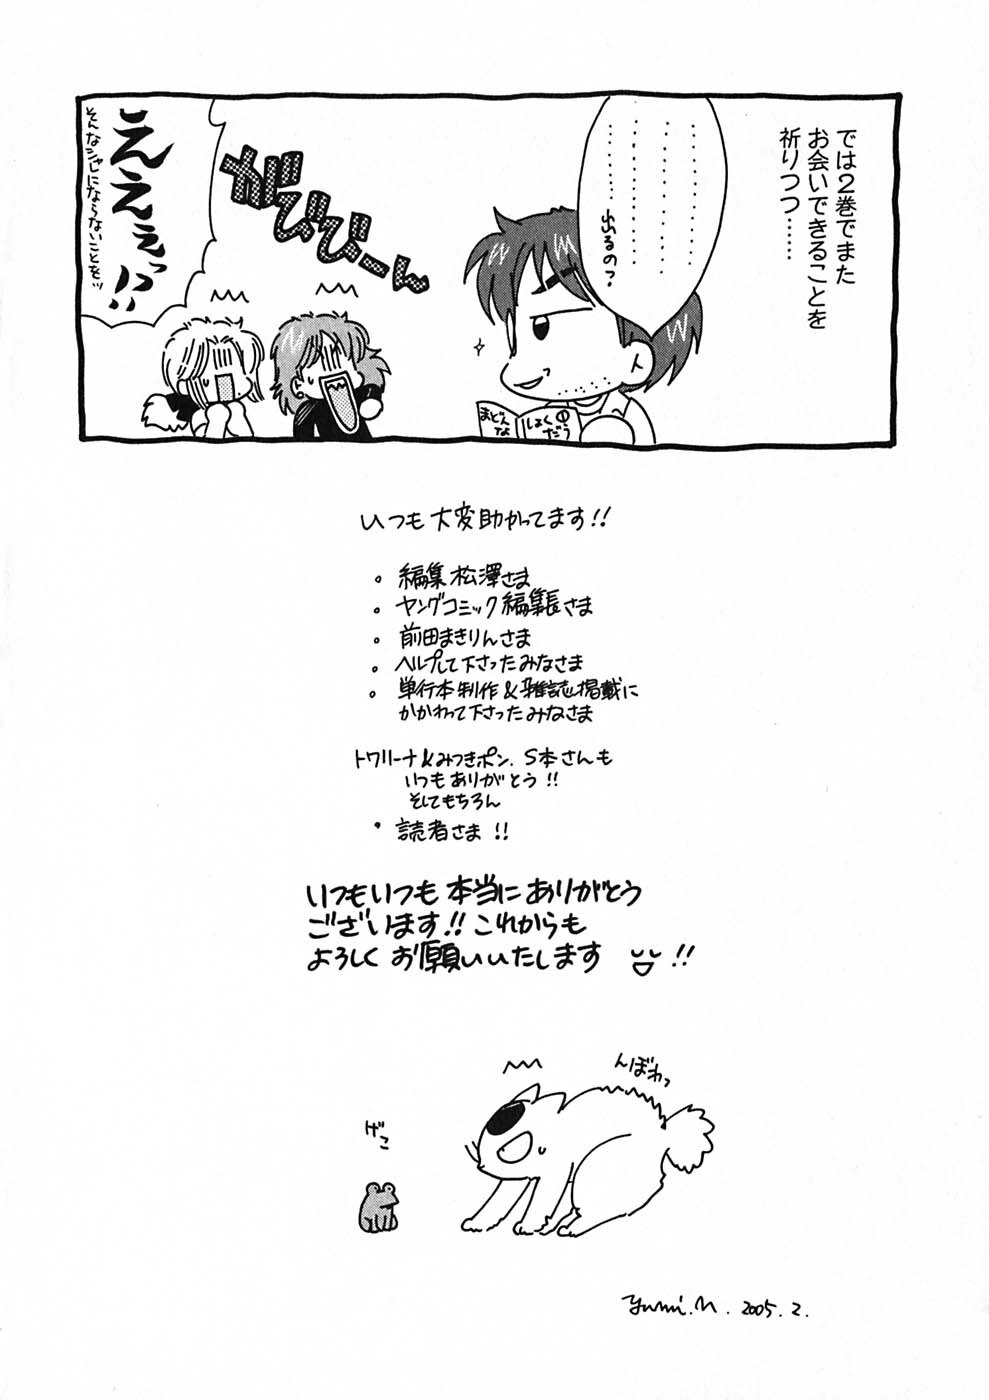 では2巻でまた
お会いできることを
祈りつつ……
…………………
…………………
…………………
…………出るの?
まどんな
しょくだう
がびびーん
えええっ!!
そんなシャレにならないことをッ
いつも大変助かってます!!
。編集松澤さま
。ヤングコミック編集長さま
。前田まきりんさま
。ヘルプして下さったみなさま
。単行本制作&雑誌掲載に
かかわって下さったみなさま
トワリーナ&みつきポン、S本さんも
いつもありがとう!!
そしてもちろん
・読者さま!!
いつもいつも本当にありがとう
ございます!!これからも
よろしくお願いいたします!!
んぼわっ
げこ
Yumi.N. 2005.2.